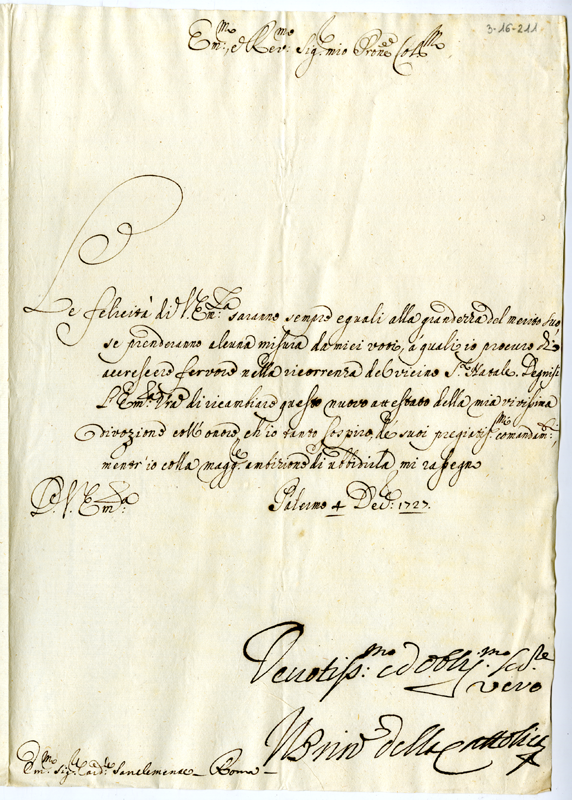 3-16-211
Em:mo, e Rev:mo Sig:re mio Prone Coll:mo
Le felicità di V. Em:za saranno sempre eguali alla grandezza del merito suo
se prenderanno alcuna misura da miei voti, a quali io procuro di
accrescere fervore nella ricorrenza del vicino S. Natale. Degnisi
l'Em:za Vra di ricambiare questo nuovo attestato della mia vivissima
divozione coll'onore, ch'io tanto sospiro, de' suoi pregiatiss:mi comandam:ti
mentr'io colla magg: ambizione di ubbidirla mi rassegno
D. V. Em:za
Palermo 4 Dec: 1727.
Devotiss:mo ed obbl:mo
vero
Il Prin: della Cattolica
Em:mo Sig:re Card: Sanclemente - Roma -